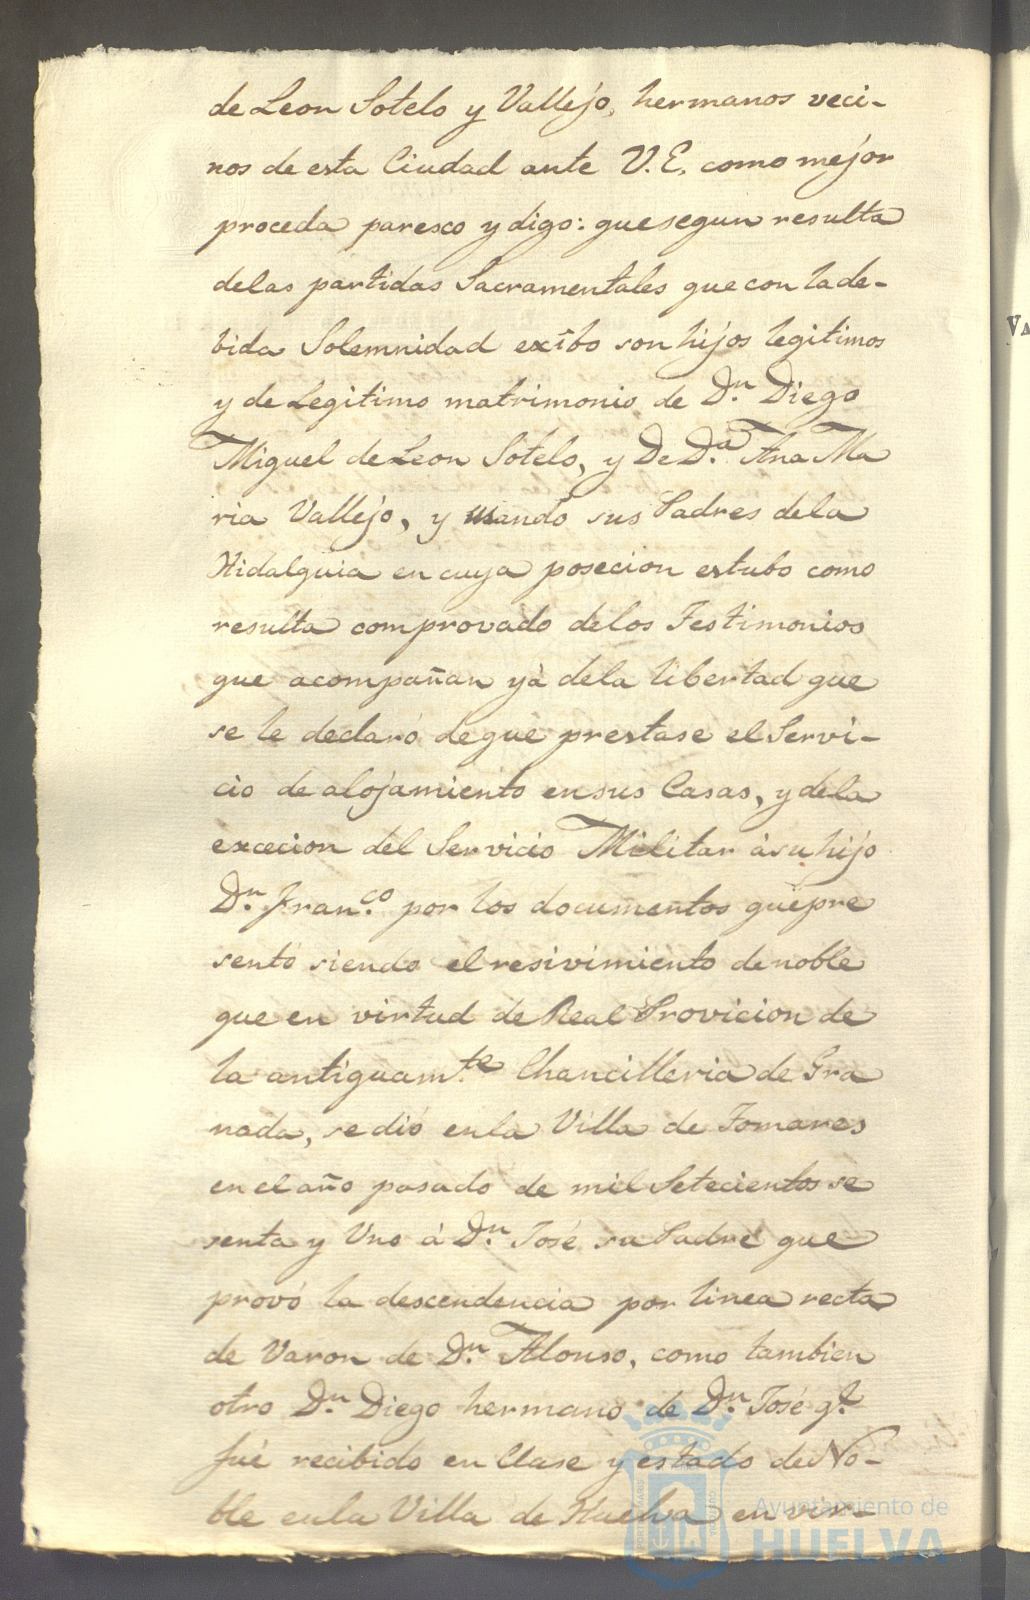 de Leon Sotelo y Vallejo, hermanos veci-
nos de esta Ciudad ante V.E. como mejor
proceda paresco y digo: que segun resulta
delas partidas Sacramentales que con la de-
bida Solemnidad exîbo son hijos legitimos
y de Legitimo matrimonio de Dn. Diego
Miguel de Leon Sotelo, y De Da. Ana Ma
ria Vallejo, y usando sus Padres dela
Hidalguia en cuya posecion estubo como
resulta comprovado delos Testimonios
que acompañan yà dela libertad que
se le declaró de que prestase el Servi-
cio de alojamiento en sus Casas, y dela
excecion del Servicio Militar à su hijo
Dn. Fran.co por los documentos que pre
sentó siendo el resivimiento de noble
que en virtud de Real Provicion de
la antiguam.te Chancilleria de Gra
nada, se dió en la Villa de Tomares
en el año pasado de mil Setecientos se
senta y Uno à Dn. José su Padre que
provó la descendencia por linea recta
de Varon de Dn. Alonso, como tambien
otro Dn. Diego hermano de Dn. José q.e
fué recibido en Clase y estado de No-
ble en la Villa de Huelva en vir-
VA
Ayuntamiento de
HUELVA